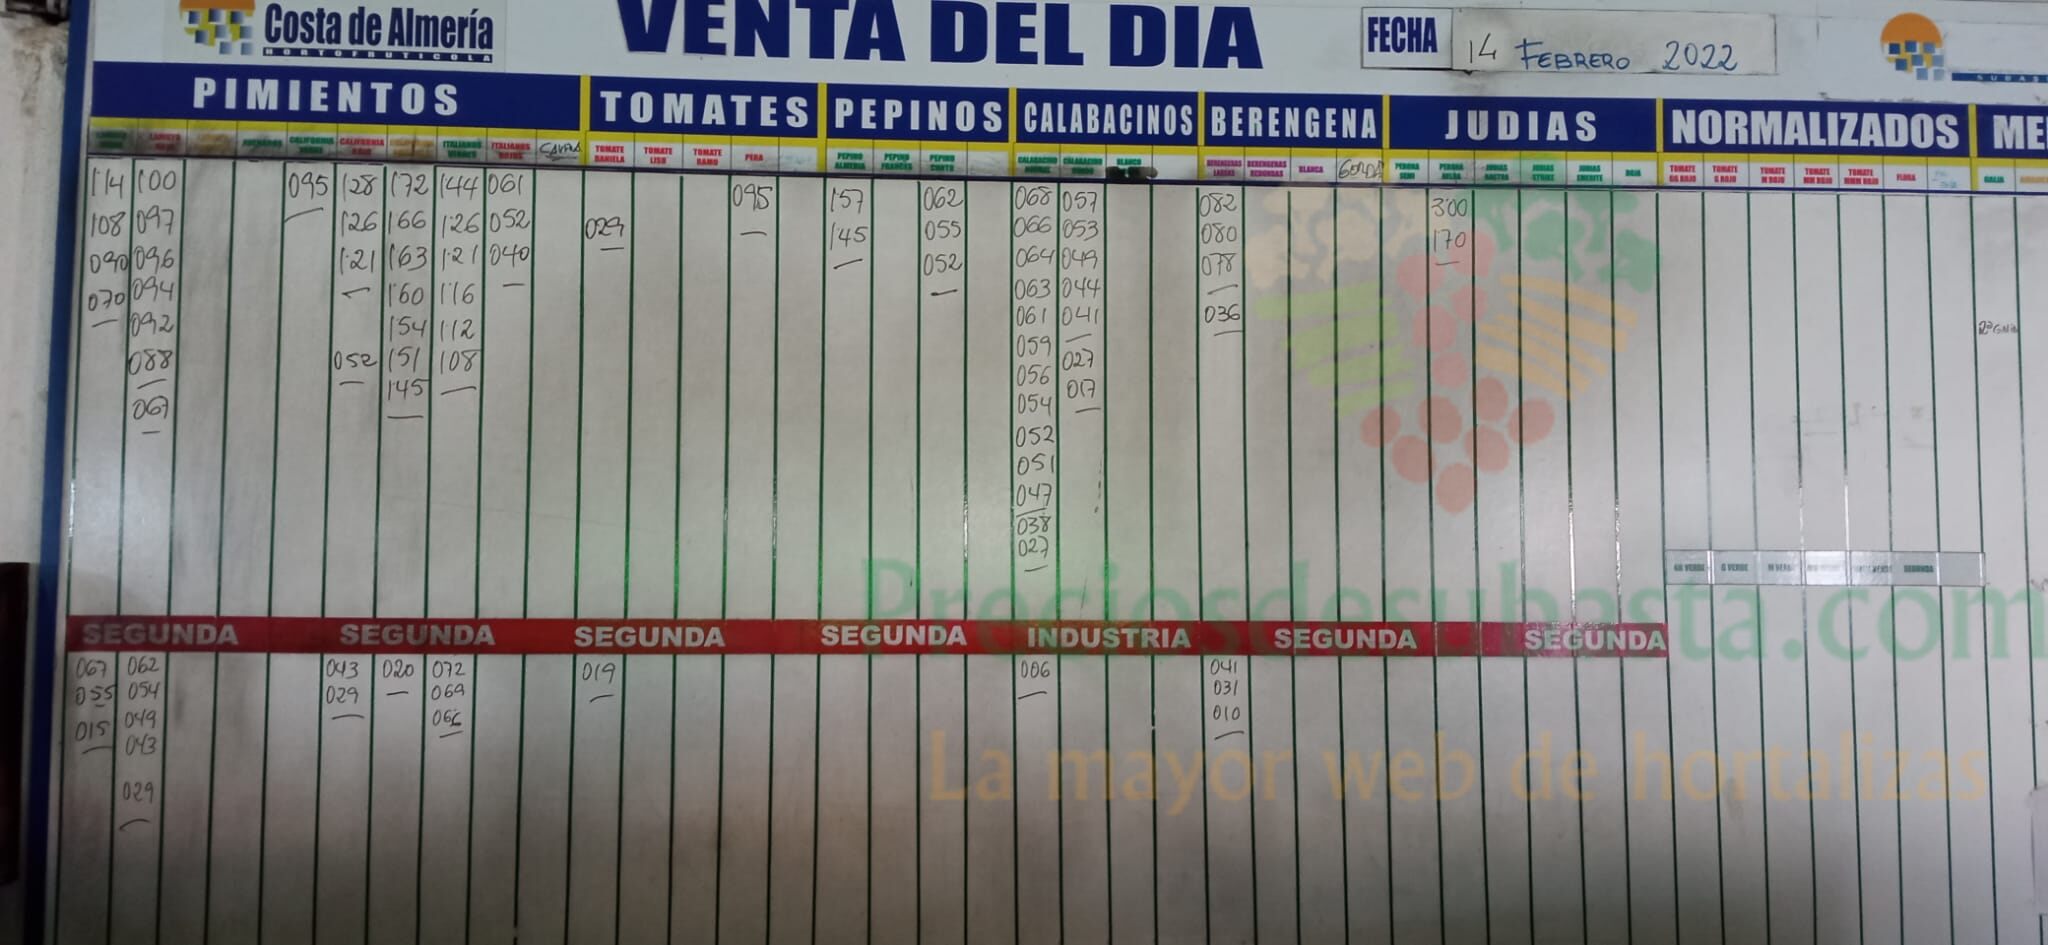 Costa de Almería
HORTOFRUTICOLA
VENTA DEL DIA
FECHA
14 FEBRERO 2022
PIMIENTOS TOMATES PEPINOS CALABACINOS BERENGENA JUDIAS NORMALIZADOS
CALIFORNIA ITALIANOS TOMATE DANIELA TOMATE LISO TOMATE RAMO PERA PEPINO ALMERIA PEPINO FRANCES PEPINO CORTO CALABACINO CALABACINO BLANCO BERENGENAS LARGAS BERENGENAS REDONDAS BLANCA GORDA PERONA SEMI PERONA JUDIAS JUDIAS STRIKE JUDIAS EMERITE ROJA TOMATE GG ROJO TOMATE G ROJO TOMATE M ROJO TOMATE MM ROJO TOMATE MMM ROJO FLORA GALIA
114 100 095 128 172 144 061 095 157 062 068 057 082 300
108 097 126 166 126 052 029 145 055 066 053 080 170
090 096 121 163 121 040 052 064 049 078
070 094 160 116 063 044
092 154 112 061 041 036
088 052 151 108 059 027
145 056 017
067 054
052
051
047
038
027
G VERDE M VERDE SEGUNDA
SEGUNDA SEGUNDA SEGUNDA SEGUNDA INDUSTRIA SEGUNDA SEGUNDA
067 062 043 020 072 019 006 041
055 054 029 069 031
015 049 066 010
043
029
Preciosdesubasta.com
La mayor web de hortalizas